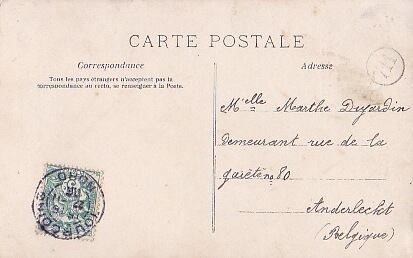 CARTE POSTALE
Correspondance
Tous les pays étrangers n'acceptent pas la
correspondance au recto, se renseigner à la Poste.
Adresse
Melle Marthe Dujardin
demeurant rue de la
gaiété no 80
Anderleckt
(Belgique)
TOURCOING
NORD